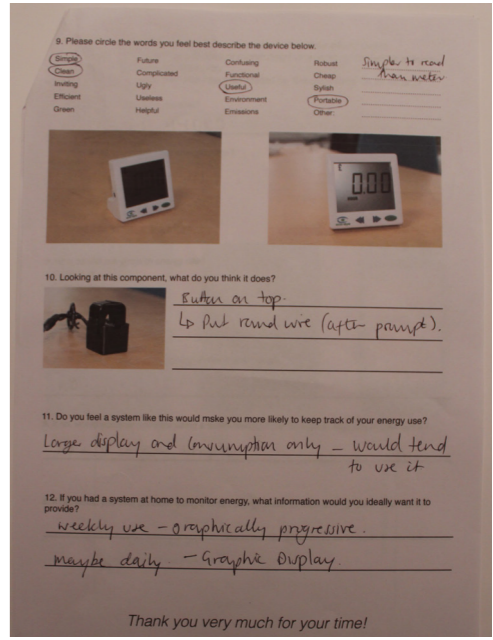 9. Please circle the words you feel best describe the device below.
Simple Future Confusing Robust Simpler to read
Clean Complicated Functional Cheap than meter
Inviting Ugly Useful Sylish
Efficient Useless Environment Portable
Green Helpful Emissions Other:
£
0.00
10. Looking at this component, what do you think it does?
Button on top.
↳ Put round wire (after prompt).
11. Do you feel a system like this would make you more likely to keep track of your energy use?
Large display and consumption only – would tend
to use it
12. If you had a system at home to monitor energy, what information would you ideally want it to
provide?
weekly use – graphically progressive.
maybe daily. – Graphic Display.
Thank you very much for your time!